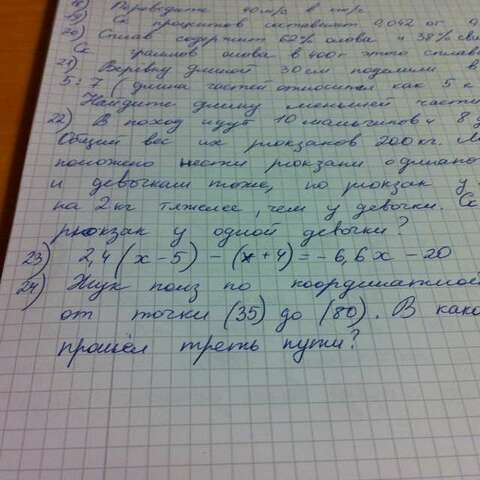 18) Переводите 40 м/р в
19) Ск процентов составит 0,042 от
20) Сплав содержит 62% олова и 38% сви
Ск граммов олова в 400 г этого сплав
21) Верёвку длиной 30 см поделили в
5:7 (длина частей относится как 5 к
Найдите длину меньшей части
22) В поход идут 10 мальчиков и 8 д
Общий вес их рюкзаков 200 кг. М
положено нести рюкзаки одинако
и девочкам тоже, но рюкзак у
на 2 кг тяжелее, чем у девочки. Ск
рюкзак у одной девочки?
23) 2,4(x-5)-(x+4)=-6,6x-20
24) Жук полз по координатной
от точки (35) до (80). В како
прошёл треть пути?